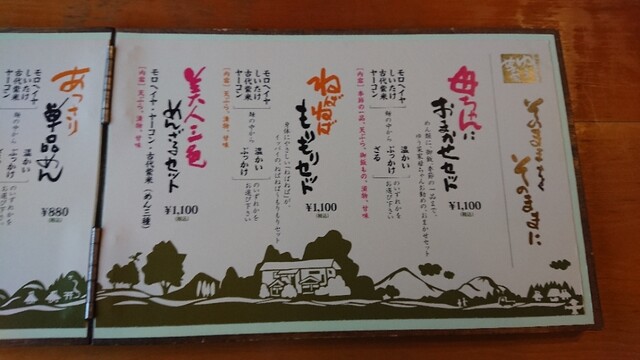 母ちゃんに
おまかせセット
めん類に、御飯、季節の一品まで、
ゆう菜家母ちゃんお勧めの、おまかせセット
¥1,100
(税込)
モロヘイヤ
しいたけ
古代紫米
ヤーコン
麺の中から
温かい
ぶっかけ
ざる
のいずれかを
お選び下さい
[内容] 季節の一品、天ぷら、御飯もの、漬物、甘味
身体にやさしい「ねばねば」が、
イッパイの、ねばねば・もりもりセット
¥1,100
(税込)
モロヘイヤ
しいたけ
古代紫米
ヤーコン
麺の中から
温かい
ぶっかけ
のいずれかを
お選び下さい
[内容] 天ぷら、漬物、甘味
美人三色
めんざるセット
モロヘイヤ・ヤーコン・古代紫米(めん三種)
¥1,100
(税込)
[内容] 天ぷら、漬物、甘味
あっさり
単品めん
モロヘイヤ
しいたけ
古代紫米
ヤーコン
麺の中から
温かい
ぶっかけ
のいずれかを
お選び下さい
¥880
(税込)